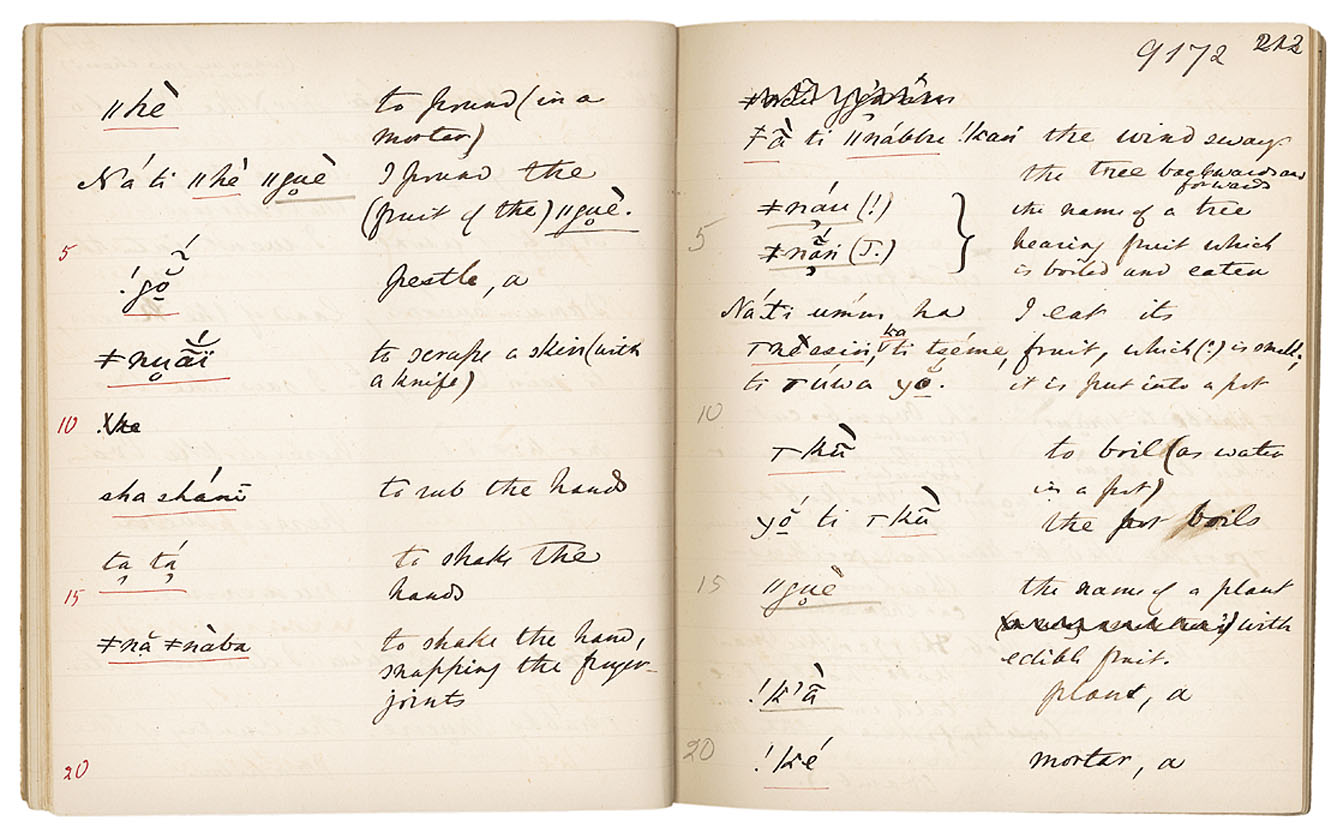 "hè to pound (in a
mortar)
Ná ti "hè "gu̥è I pound the
(fruit of the) "gu̥è.
5
!gŏ̱́ pestle, a
ǂnu̥ā́ï to scrape a skin (with
a knife)
10
sha shánī to rub the hands
ta̦ tá̦ to shake the
15 hands
ǂnă̦ ǂnàba to shake the hand,
snapping the finger-
joints
20
9172 212
ǂã̀ ti "nábbu !kań the wind sways
the tree backwards and
forwards
ǂná̦u (!) the name of a tree
5 bearing fruit which
ǂnã̦́ń (T.) is boiled and eaten
Ná ti úmm ha I eat its
ka
ti tséme, fruit, which (!) is small;
ti túwa yŏ̱. it is put into a pot
10
⊤kũ̀ to boil (as water
in a pot)
yŏ̱ ti ⊤kũ̀ the pot boils
15 "gu̥è the name of a plant
with
edible fruit.
!k'ã̀ plant, a
20 !ké mortar, a